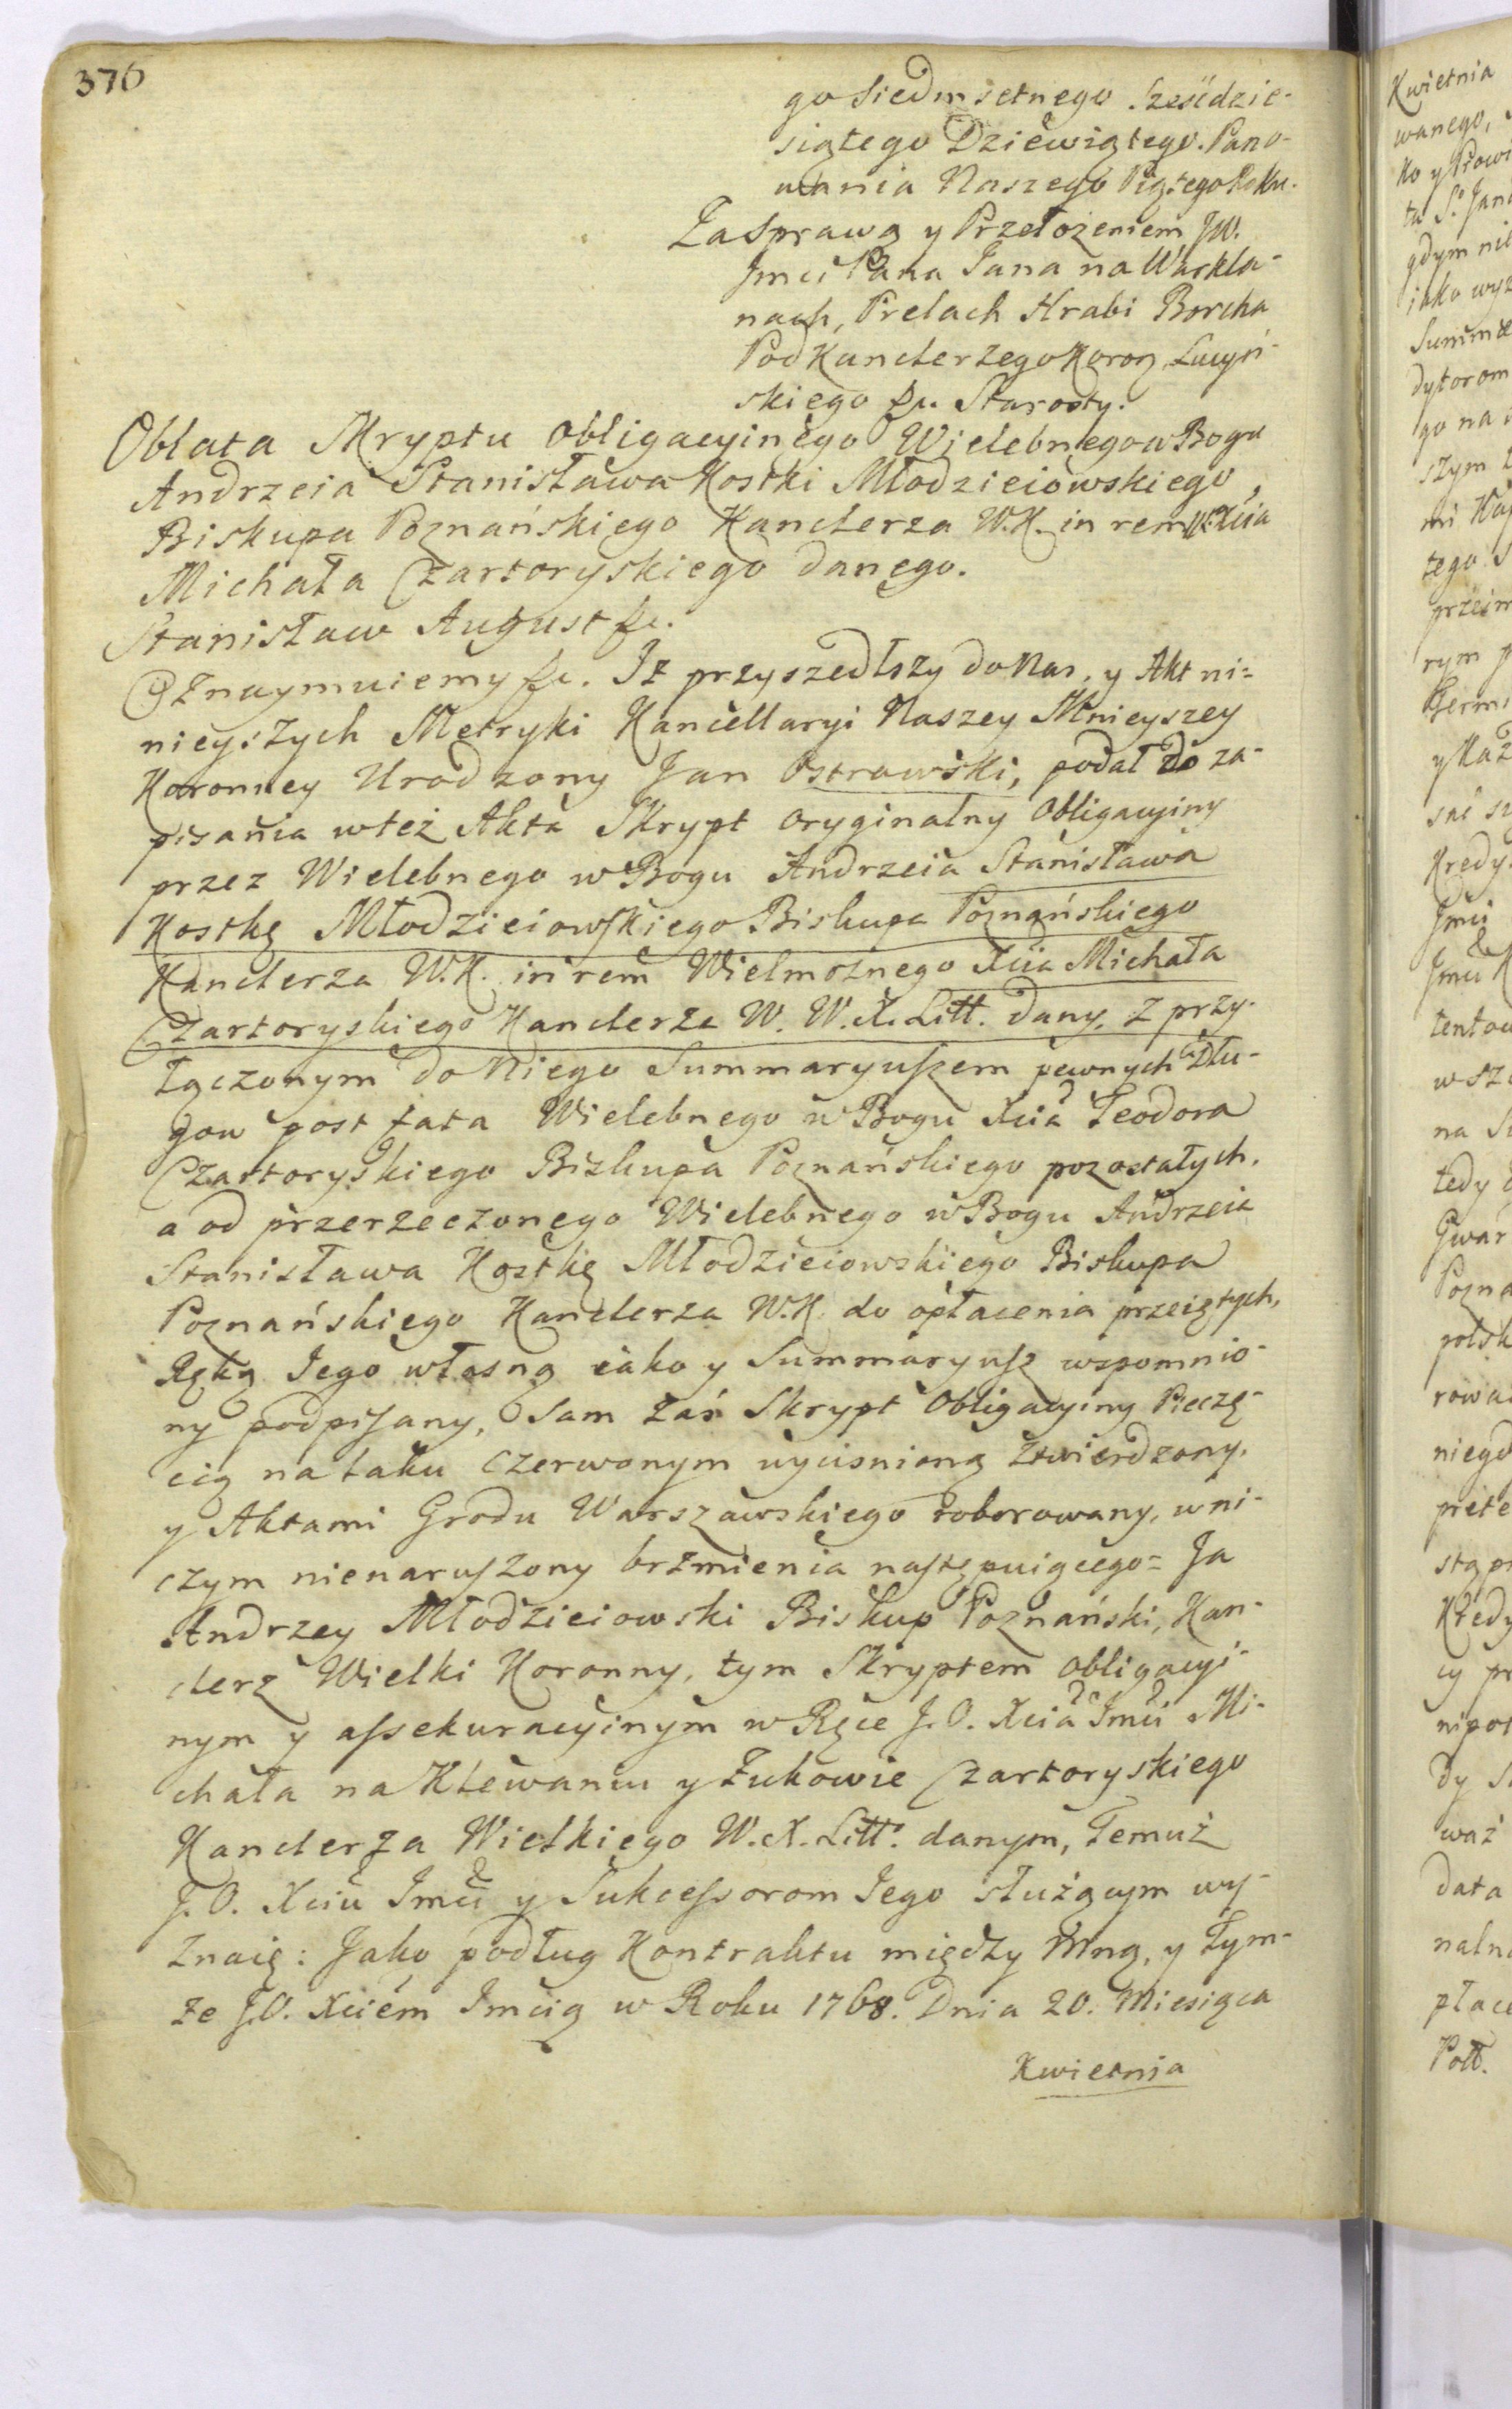 376
go Siedmsetnego Sześćdzie-
siątego Dziewiątego. Pano-
wania Naszego Piątego Roku.
Za Sprawą y Przełożeniem JW.
Jmci Pana Jana na Warkla-
nach, Prelach Hrabi Borcha
Podkanclerzego Koron, Lucyń-
skiego &c. Starosty.
Oblata Skryptu Obligacyinego Wielebnego w Bogu
Andrzeia Stanisława Kostki Młodzieiowskiego,
Biskupa Poznańskiego Kanclerza W.K. in rem W. Xcia
Michała Czartoryskiego danego.
Stanisław August &c.
Oznaymuiemy &c. Iż przyszedłszy do Nas, y Akt ni=
nieyszych Metryki Kancellaryi Naszey Mnieyszey
Koronney Urodzony Jan Ostrowski, podał do za-
pisania wteż Akta Skrypt Oryginalny Obligacyiny
przez Wielebnego w Bogu Andrzeia Stanisława
Kostkę Młodzieiowskiego Biskupa Poznańskiego
Kanclerza W.K. in rem Wielmożnego Xcia Michała
Czartoryskiego Kanclerza W. W. X. Litt. dany, z przy-
łączonym do Niego Summaryuszem pewnych Dłu-
gow post fata Wielebnego w Bogu Xcia Teodora
Czartoryskiego Biskupa Poznańskiego pozostałych,
a od przerzeczonego Wielebnego w Bogu Andrzeia
Stanisława Kostkę Młodzieiowskiego Biskupa
Poznańskiego Kanclerza W.K. do opłacenia przeiętych,
Ręką Jego własną iako y Summaryusz wspomnio-
ny podpisany, Sam zaś Skrypt Obligacyiny Pieczę-
cią na laku czerwonym wyciśnioną ztwierdzony,
y Aktami Grodu Warszawskiego roborowany, w ni-
czym nienaruszony brzmienia następuiącego= Ja
Andrzey Młodzieiowski Biskup Poznański, Kan-
clerz Wielki Koronny, tym Skryptem obligacyi-
nym y assekuracyinym w Ręce J.O. Xcia Jmci Mi-
chała na Klewaniu y Żukowie Czartoryskiego
Kanclerza Wielkiego W. X. Litt. danym, Temuż
J.O. Xciu Jmci y Sukcessorom Jego służącym wy-
znaię: Jako podług Kontraktu między Mną, y Tym-
że J.O. Xciem Jmcią w Roku 1768. Dnia 20. Miesiąca
Kwietnia
Kwietnia
wanego,
gdym
iako
Summæ
dytorom
go na
tego
rym
Kredy
Jmci
Jmci
na
tedy
Pozna
niegd
Kredy
dy
waż
data